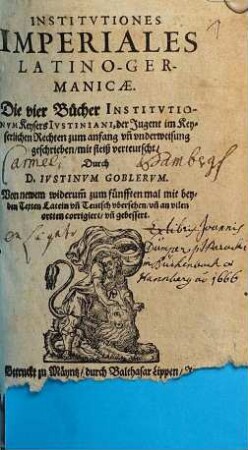 INSTITVTIONES
IMPERIALES
LATINO-GER-
MANICÆ.
Die vier Bücher INSTITVTIO-
NVM Keysers IVSTINIANI, der Jugent im Key-
serlichen Rechten zum anfang vñ vnderweisung
geschrieben / mit fleiß verteutscht /
Carmeli Durch Bamberg
D. IVSTINVM GOBLERVM.
Von newem widerum̃ zum fünfften mal mit bey-
den Texten Latein vñ Teutsch vbersehen / vñ an vilen
orten corrigiert / vñ gebessert.
Ex libris Joannis
Parochi
1666
Getruckt zu Mäyntz / durch Balthasar Lippen /